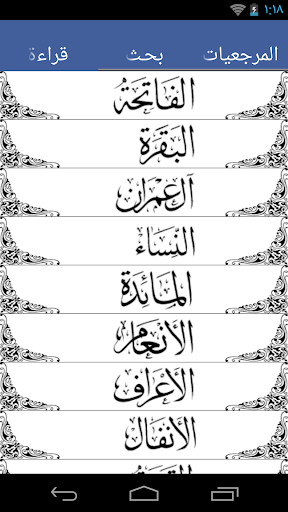 ١:١٨
المرجعيات بحث قراءة
الفَاتِحَةُ
البَقَرَة
آل عِمْرَان
النِّسَاء
المَائِدَة
الأَنْعَام
الأَعْرَاف
الأَنفَال